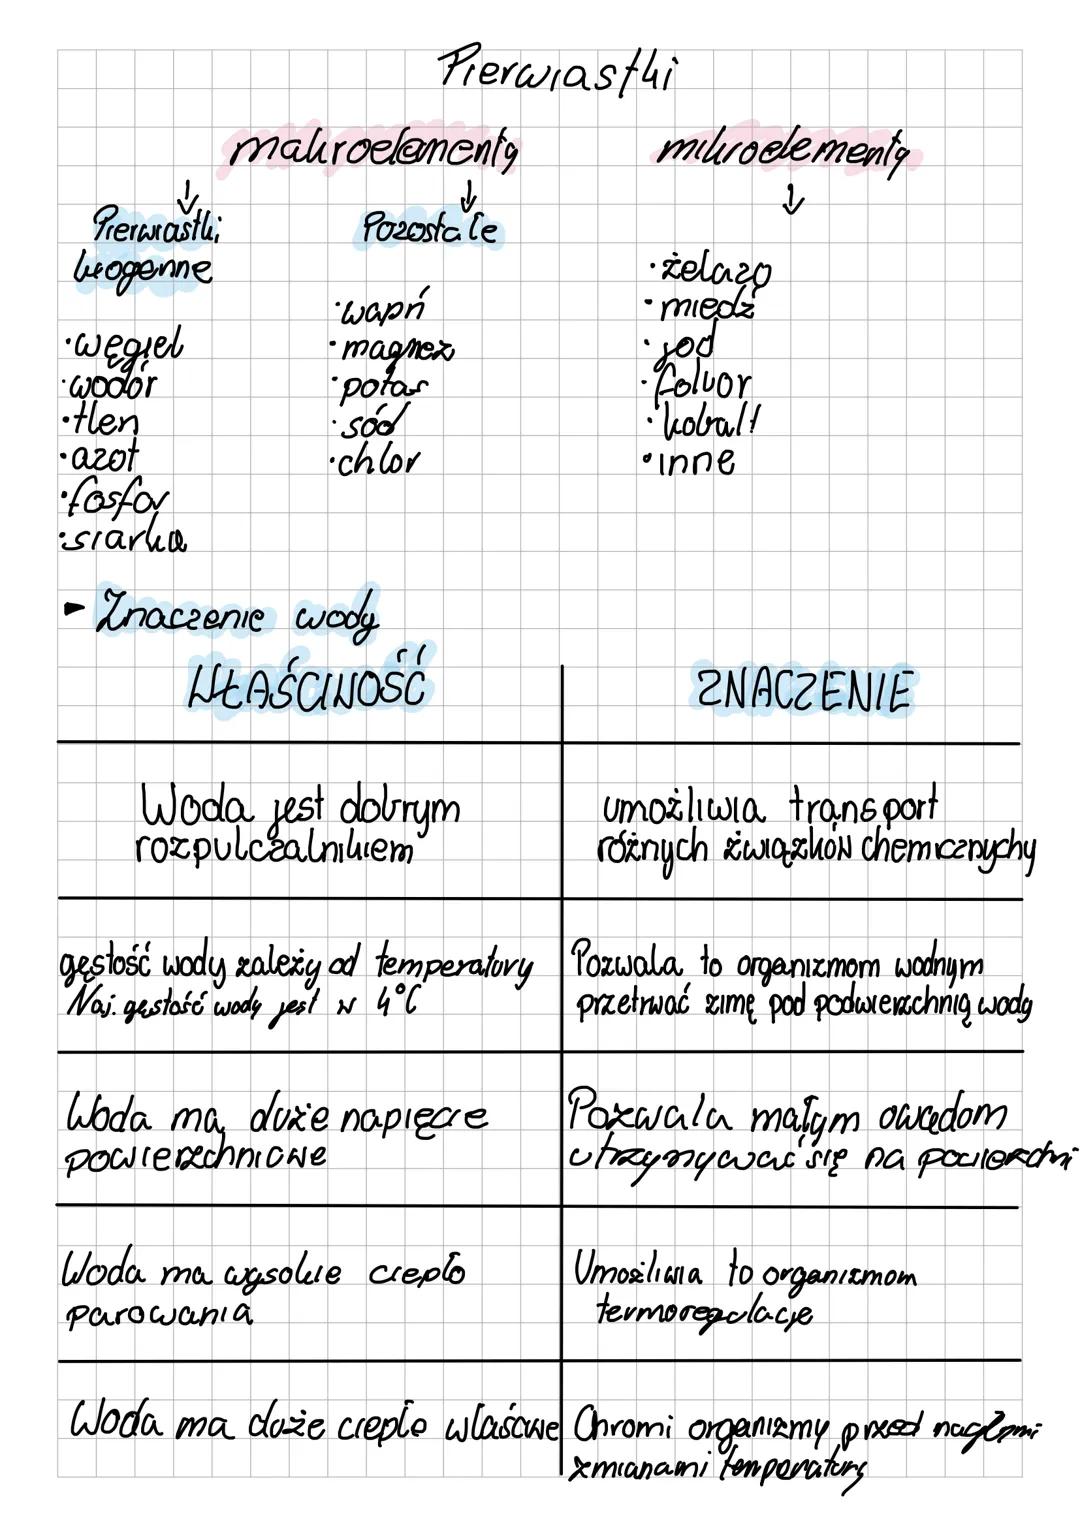 Pierwiastki
makroelementy
mikroelementy
Pierwiastki
biogenne
•węgiel
•wodór
•tlen
•azot
•fosfor
•siarka
Pozostałe
•wapń
•magnez
•potas
•sód
•chlor
•żelazo
•miedź
•jod
•foluor
•kobalt
•inne
- Znaczenie wody
WŁAŚCIWOŚĆ
ZNACZENIE
Woda jest dobrym
rozpulczalnikiem
umożliwia transport
różnych związków chemicznychy
gęstość wody zależy od temperatury
Naj. gęstość wody jest w 4°C
Pozwala to organizmom wodnym
przetrwać zimę pod podwierzchnią wody
Woda ma duże napięcie
powierzchniowe
Pozwala małym owadom
utrzymywać się na powierzchni
Woda ma wysokie ciepło
parowania
Umożliwia to organizmom
termoregulacje
Woda ma duże ciepło właściwe
Chromi organizmy przed nagłymi
zmianami temperatury